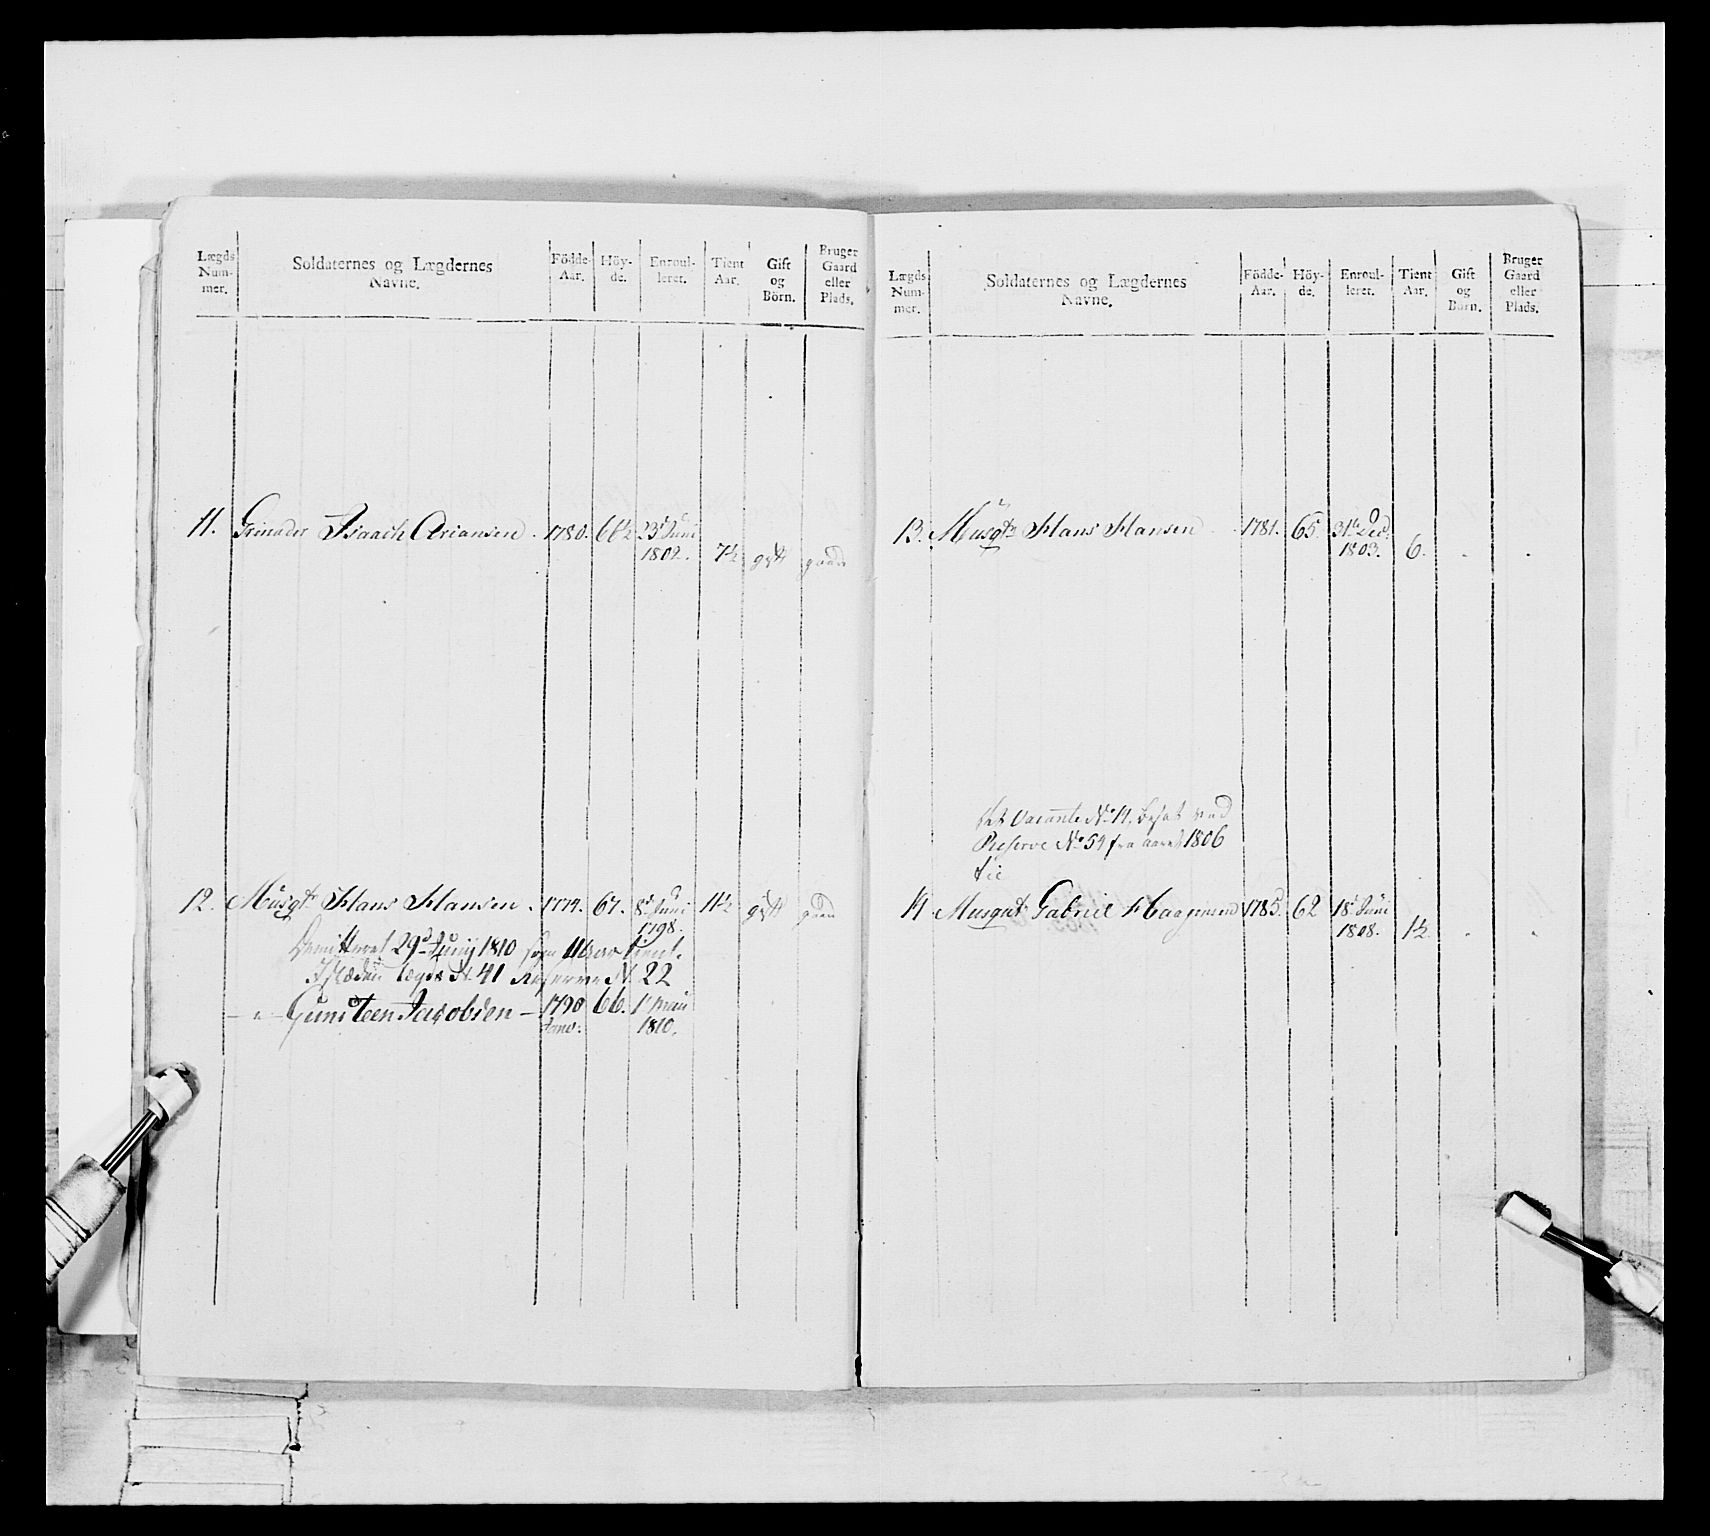 Lægds Num-mer. Soldaternes og Lægdernes Navne. Födde-Aar. Höy-de. Enroul-leret. Tient Aar. Gift og Börn. Bruger Gaard eller Plads.
11. Grinader Isaach Ariansen. 1780. 66½ 23d Juni
1802. 7½ gift gaard
12. Musqtr Hans Hansen. 1774. 67. 8d Juni 11½ gift gaard
1798.
Demitteret 29d Juny 1810 som 11 aar tient.
I stæden Lægds N. 41 Reserve N. 22
— " — Gunsteen Jacobsen — 1790 66. 1t Maii
1810.
Lægds Num-mer. Soldaternes og Lægdernes Navne. Födde-Aar. Höy-de. Enroul-leret. Tient Aar. Gift og Börn. Bruger Gaard eller Plads.
13. Musqtr Hans Hansen 1781. 65. 31te Dec:
1803. 6. . .
Det Vacante No 14, besat ved
Reserve No 54 fra aaret 1806
14 Musqut: Gabriel Haagensen 1785. 62 18d Juni
1808. 1½. . .